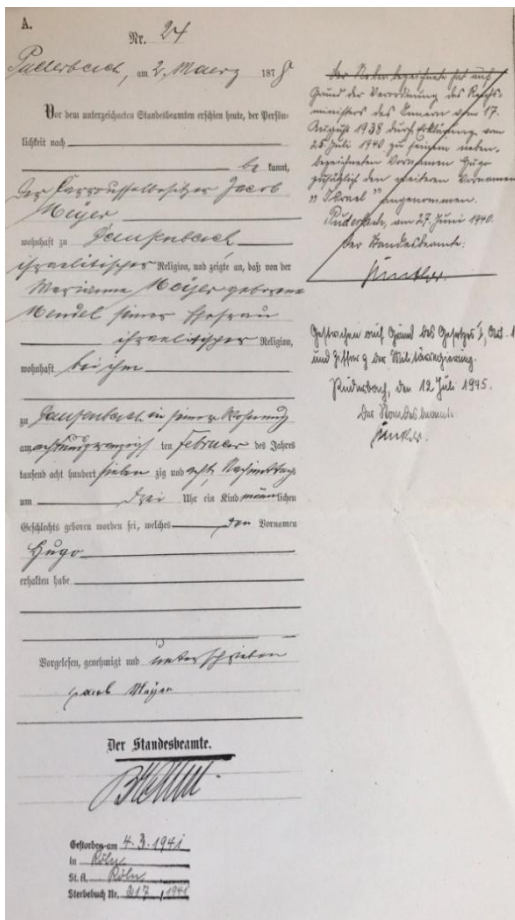 A.
Nr. 24
Puderbach, am 2. Maerz 1878
Vor dem unterzeichneten Standesbeamten erschien heute, der Persön-
lichkeit nach
be kannt,
der Carrousselbesitzer Jacob
Meyer
wohnhaft zu Daufenbach
israelitischer Religion, und zeigte an, daß von der
Marianne Meyer geborene
Mendel seiner Ehefrau
israelitischer Religion,
wohnhaft bei ihm
zu Daufenbach in seiner Wohnung
am achtundzwanzigsten ten Februar des Jahres
tausend acht hundert sieben zig und acht, Nachmittags
um Drei Uhr ein Kind männlichen
Geschlechts geboren worden sei, welches den Vornamen
Hugo
erhalten habe
Vorgelesen, genehmigt und unterschrieben
Jacob Meyer
Der Standesbeamte.
Gestorben am 4.3.1941
in Köln
St.A. Köln
Sterbebuch Nr. 217/1941
Der Nebenbezeichnete hat auf
Grund der Verordnung des Reichs-
ministers des Innern vom 17.
August 1938 durch Erklärung vom
25 Juli 1940 zu seinem neben-
bezeichneten Vornamen Hugo
zusätzlich den weiteren Vornamen
"Israel" angenommen.
Puderbach, am 27. Juni 1940.
Der Standesbeamte:
Gestrichen auf Grund des Gesetzes 1, Art. 1
und Ziffer 9 der Militärregierung.
Puderbach, den 12 Juli 1945.
Der Standesbeamte.